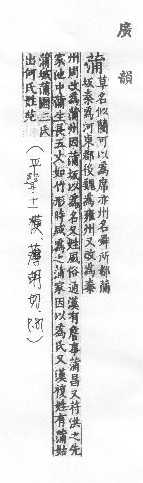 廣韻
蒲 草名似蘭可以為席亦州名舜所都蒲
坂秦為河東郡後魏為雍州又改為秦
州周改為蒲州因蒲坂以為名又姓風俗通漢有詹事蒲昌又苻洪之先
家池中蒲生長五丈如竹形時咸為之蒲家因以為氏又漢複姓有蒲姑
蒲城蒲圃三氏
出何氏姓苑 (平聲十一模、薄胡切、P.81)